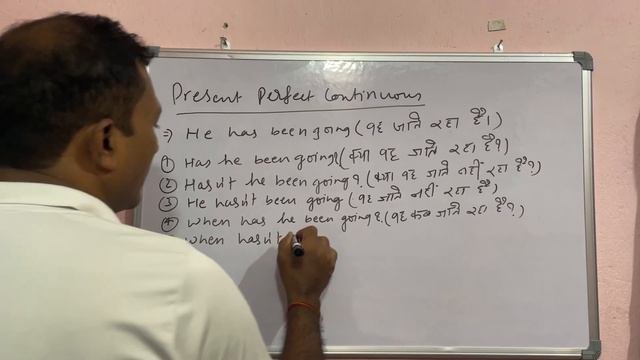 Present Perfect Continuous
⇒ He has been going (वह जाते रहा है।)
① Has he been going? (क्या वह जाते रहा है?)
② Hasn't he been going? (क्या वह जाते नहीं रहा है?)
③ He hasn't been going (वह जाते नहीं रहा है)
④ When has he been going? (वह कब जाते रहा है?)
When hasn't